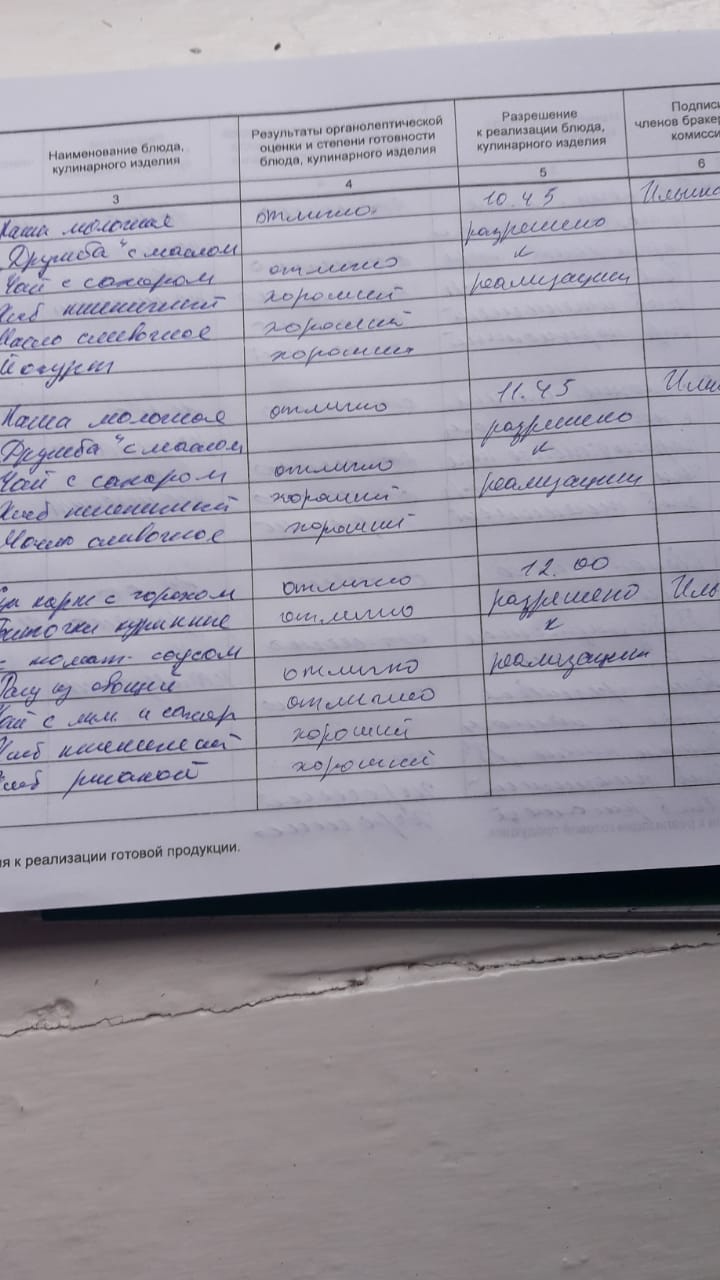 Наименование блюда, кулинарного изделия
Результаты органолептической оценки и степени готовности блюда, кулинарного изделия
Разрешение к реализации блюда, кулинарного изделия
Подписи членов комисси
3 4 5 6
Каша молочная отлично. 10.45
Дружба" с маслом разрешено
Чай с сахаром отлично к
Хлеб пшеничный хороший реализации
Масло сливочное хороший
Йогурт хороший
Каша молочная отлично 11.45
Дружба" с маслом разрешено
Чай с сахаром отлично к
Хлеб пшеничный хороший реализации
Масло сливочное хороший
12.00
карт с горохом отлично разрешено
куриные отлично к
с томат. соусом
Рагу из овощей отлично реализации
Чай с лим. и сахар отлично
Хлеб пшеничный хороший
Хлеб ржаной хороший
к реализации готовой продукции.